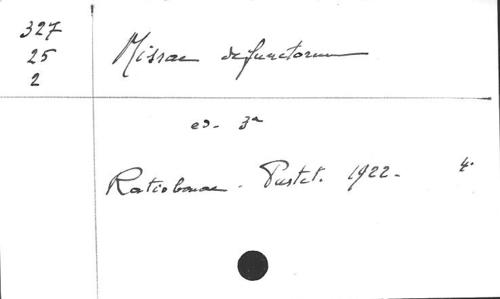 327
25
2
Missae defunctorum
ed. 3ª
Ratisbonae. Pustet. 1922. 4º